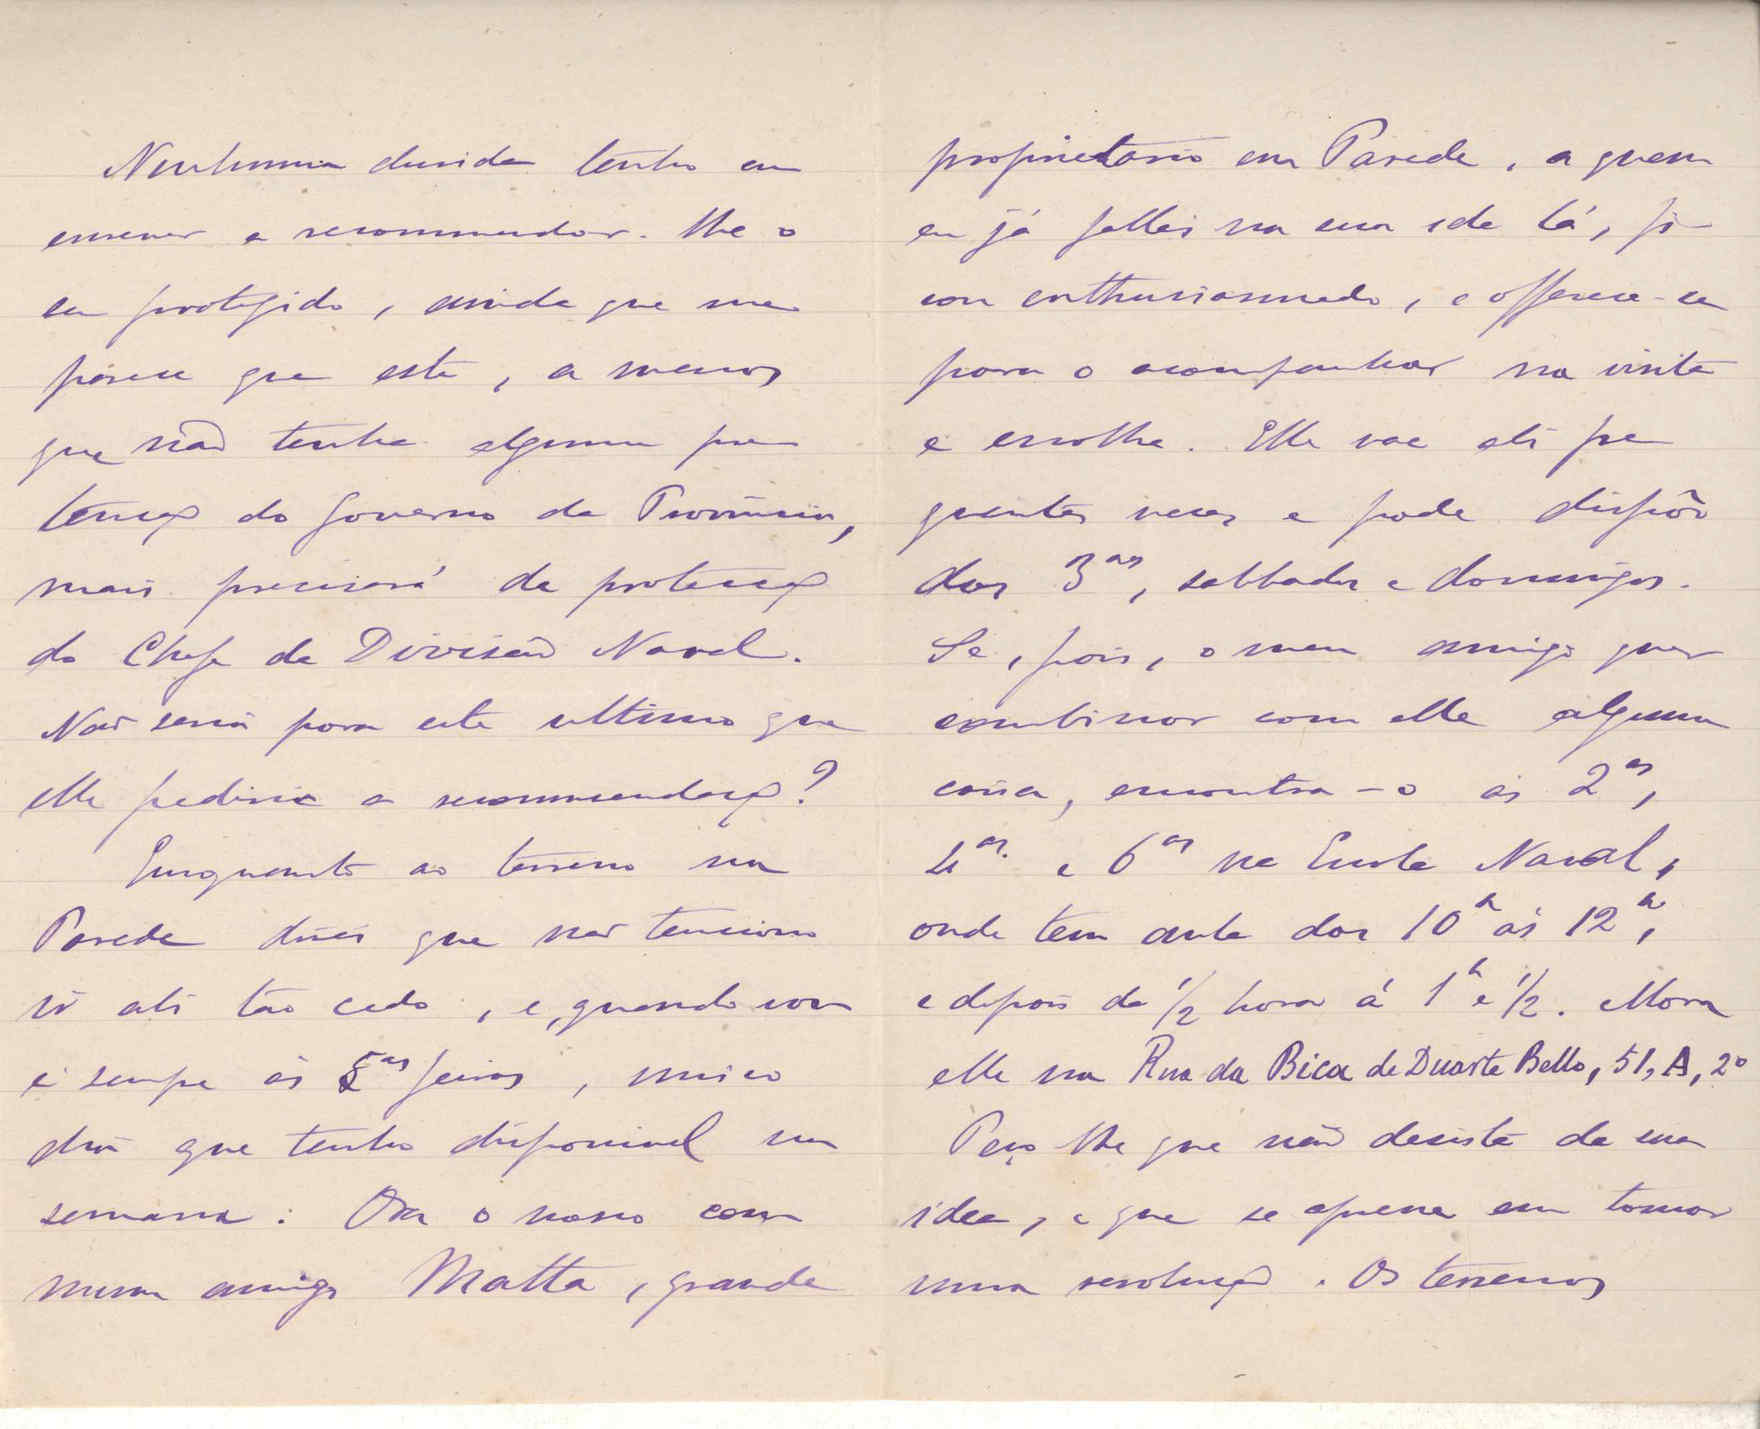 Nenhuma duvida tenho em
escrever e recommendar-lhe o
seu protegido, ainda que me
parece que este, a menos
que não tenha alguma pre
tenção do Governo da Provincia,
mais precisará da protecção
do Chefe da Divisão Naval.
Não seria para este ultimo que
elle pediria a recommendação?
Emquanto ao terreno na
Parede direi que não tenciono
ir ali tão cedo, e, quando vou
é sempre ás 5as feiras, unico
dia que tenho disponivel na
semana. Ora o nosso com
mum amigo Matta, grande
proprietario em Parede, a quem
eu já fallei na sua ida lá, fi-
cou enthusiasmado, e offerece-se
para o acompanhar na visita
e escolha. Elle vae ali fre
quentes vezes e pode dispôr
das 3as, sabbados e domingos.
Se, pois, o meu amigo quer
combinar com elle alguma
coisa, encontra-o ás 2as,
4as e 6as na Escola Naval,
onde tem aula das 10h ás 12h,
e depois da 1/2 hora á 1h e 1/2. Mora
elle na Rua da Bica de Duarte Bello, 51, A, 2º
Peço lhe que não desista da sua
idea, e que se apresse em tomar
uma resolução. Os terrenos